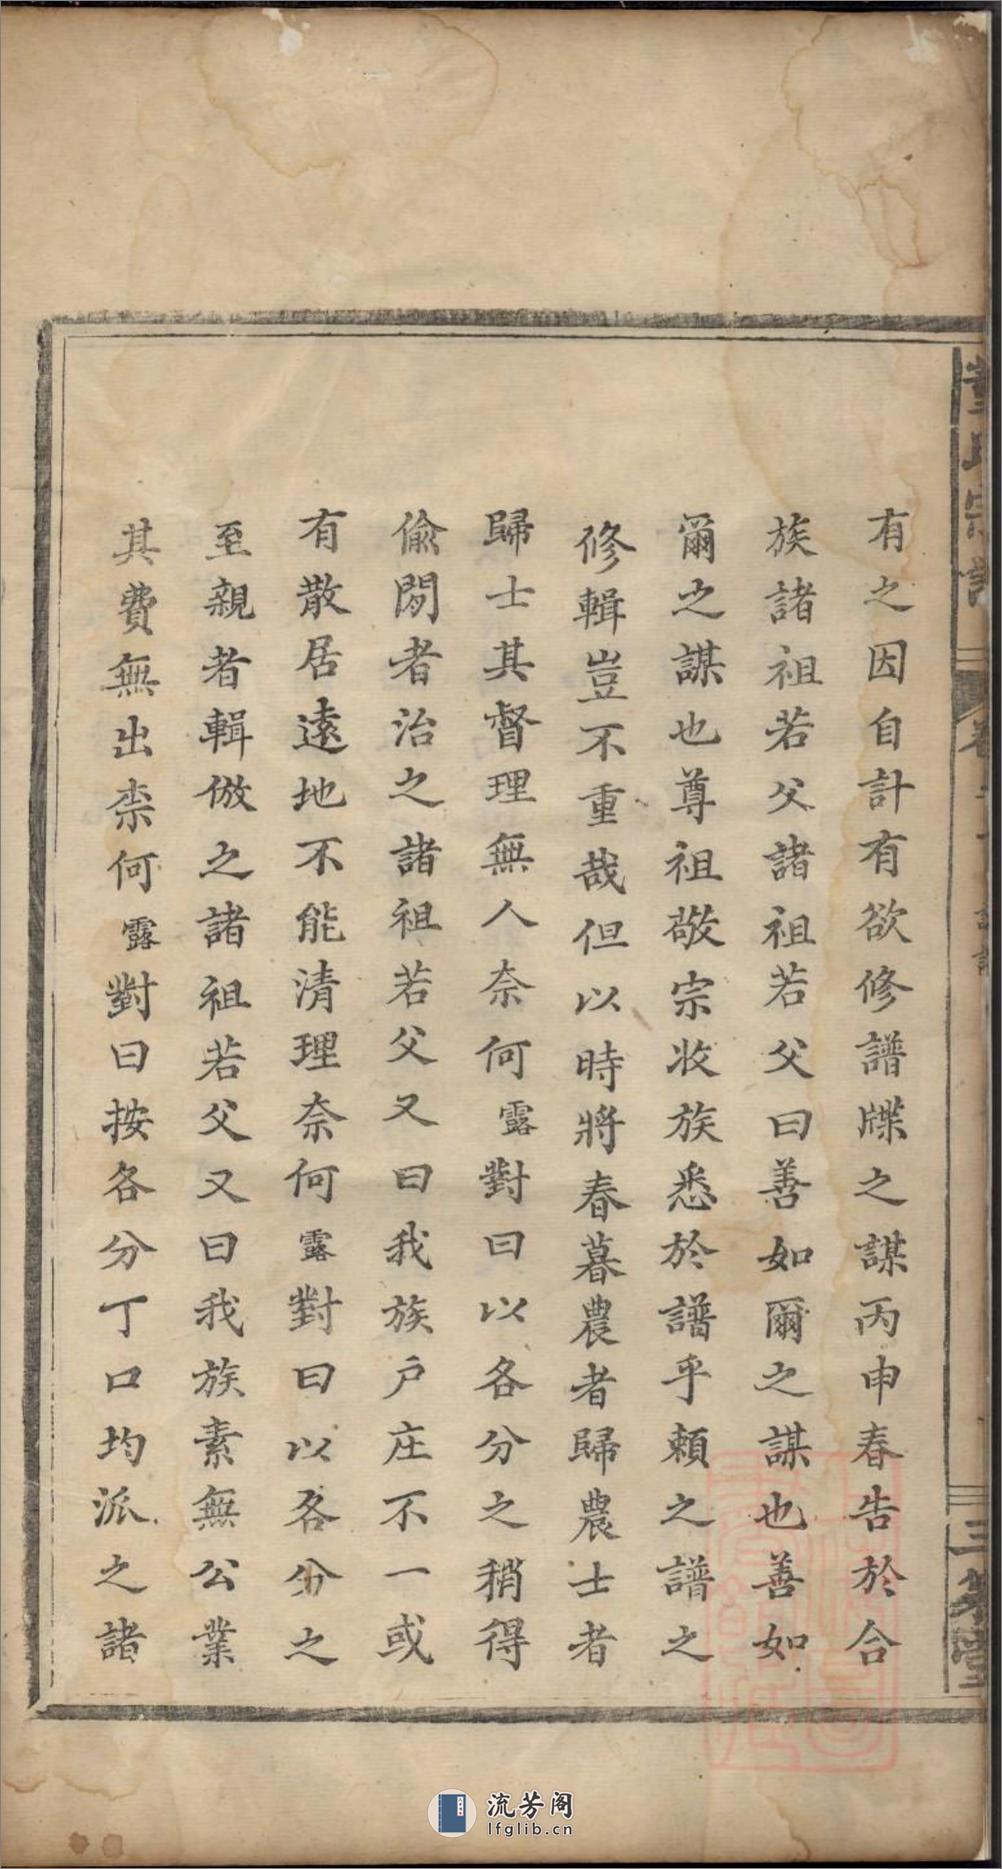 有之因自計有欲修譜牒之謀丙申春告於合
族諸祖若父諸祖若父曰善如爾之謀也善如
爾之謀也尊祖敬宗收族悉於譜乎賴之譜之
修輯豈不重哉但以時將春暮農者歸農士者
歸士其督理無人奈何露對曰以各分之稍得
偷閒者治之諸祖若父又曰我族户庄不一或
有散居遠地不能清理奈何露對曰以各分之
至親者輯倣之諸祖若父又曰我族素無公業
其費無出柰何露對曰按各分丁口均派之諸
流芳阁
lfglib.cn